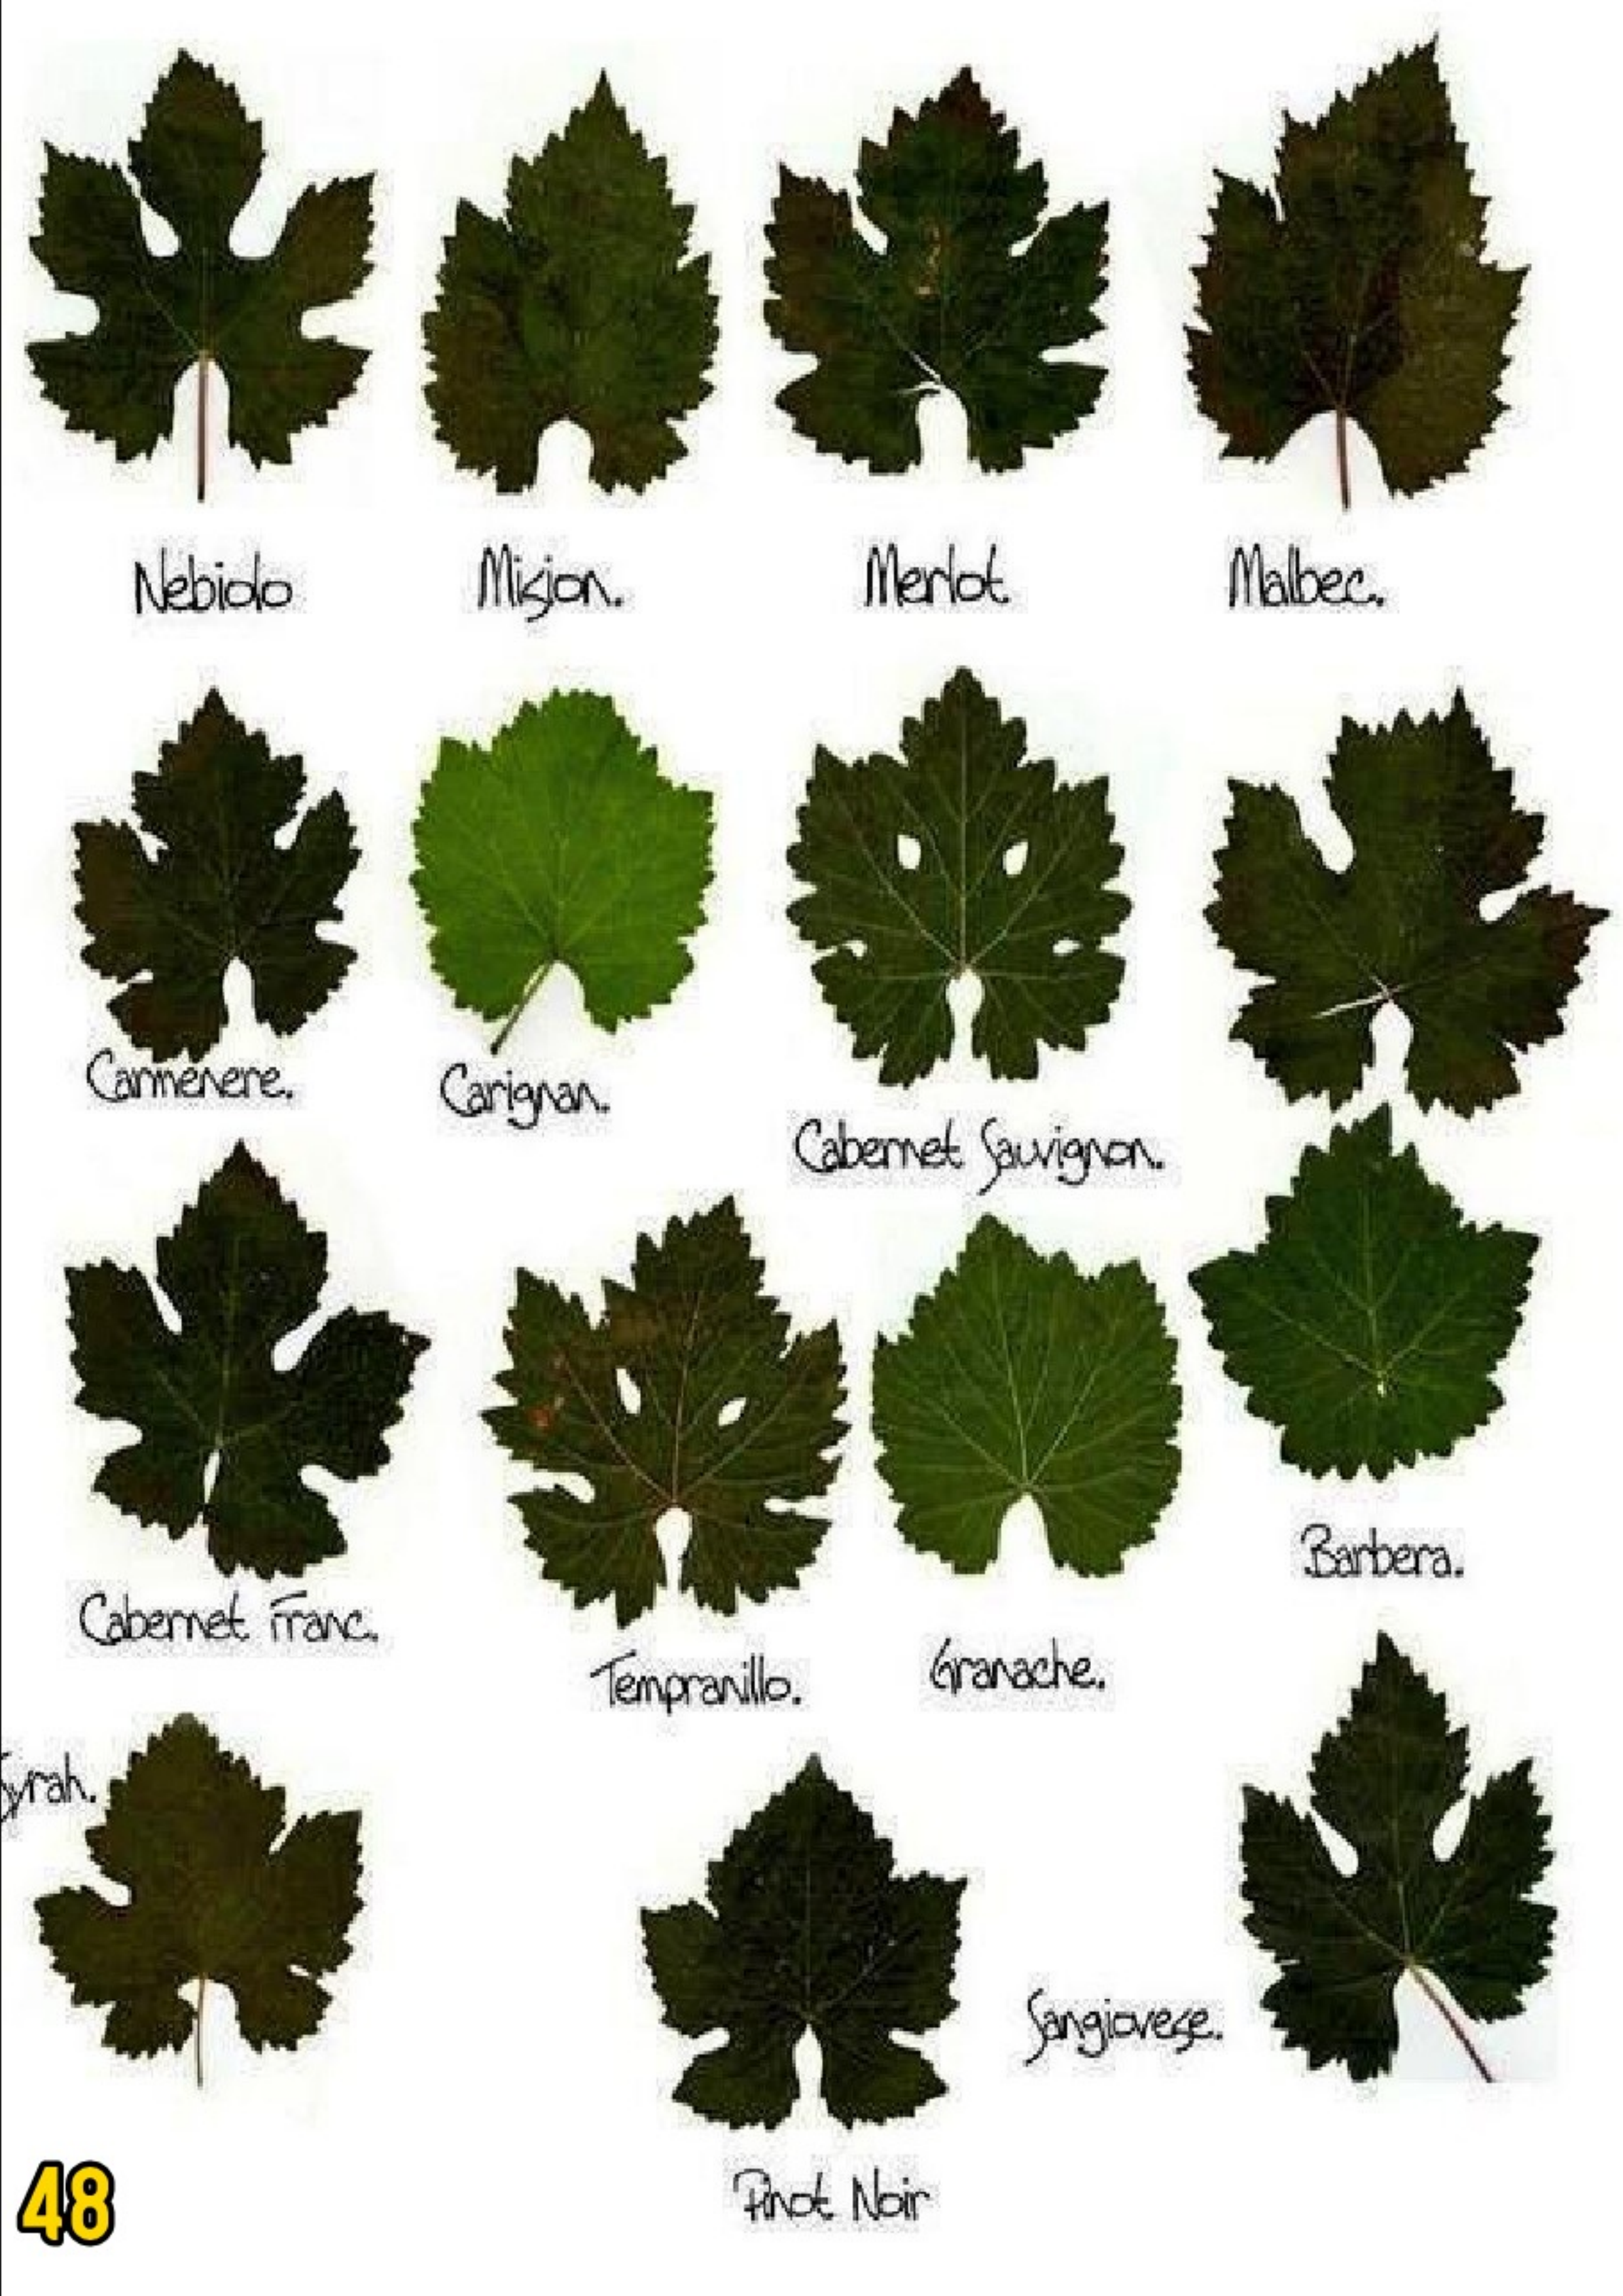 Nebiolo
Mision.
Merlot.
Malbec.
Carmenere.
Carignan.
Cabernet Sauvignon.
Cabernet Franc.
Tempranillo.
Granache.
Barbera.
Syrah.
Pinot Noir
Sangiovese.
48